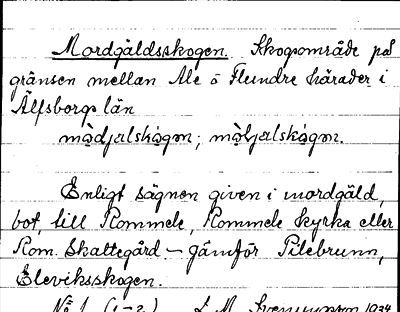 Mordgäldsskogen. Skogsområde på
gränsen mellan Ale o Flundre härader i
Älfsborgs län
mødjalskøgøn; møljalskøgøn.
Enligt sägnen given i mordgäld,
bot, till Rommele, Rommele kyrka eller
Rom. Skattegård – jämför Pilebrunn,
Eleviksskogen.
No 1 (1–2) 1934